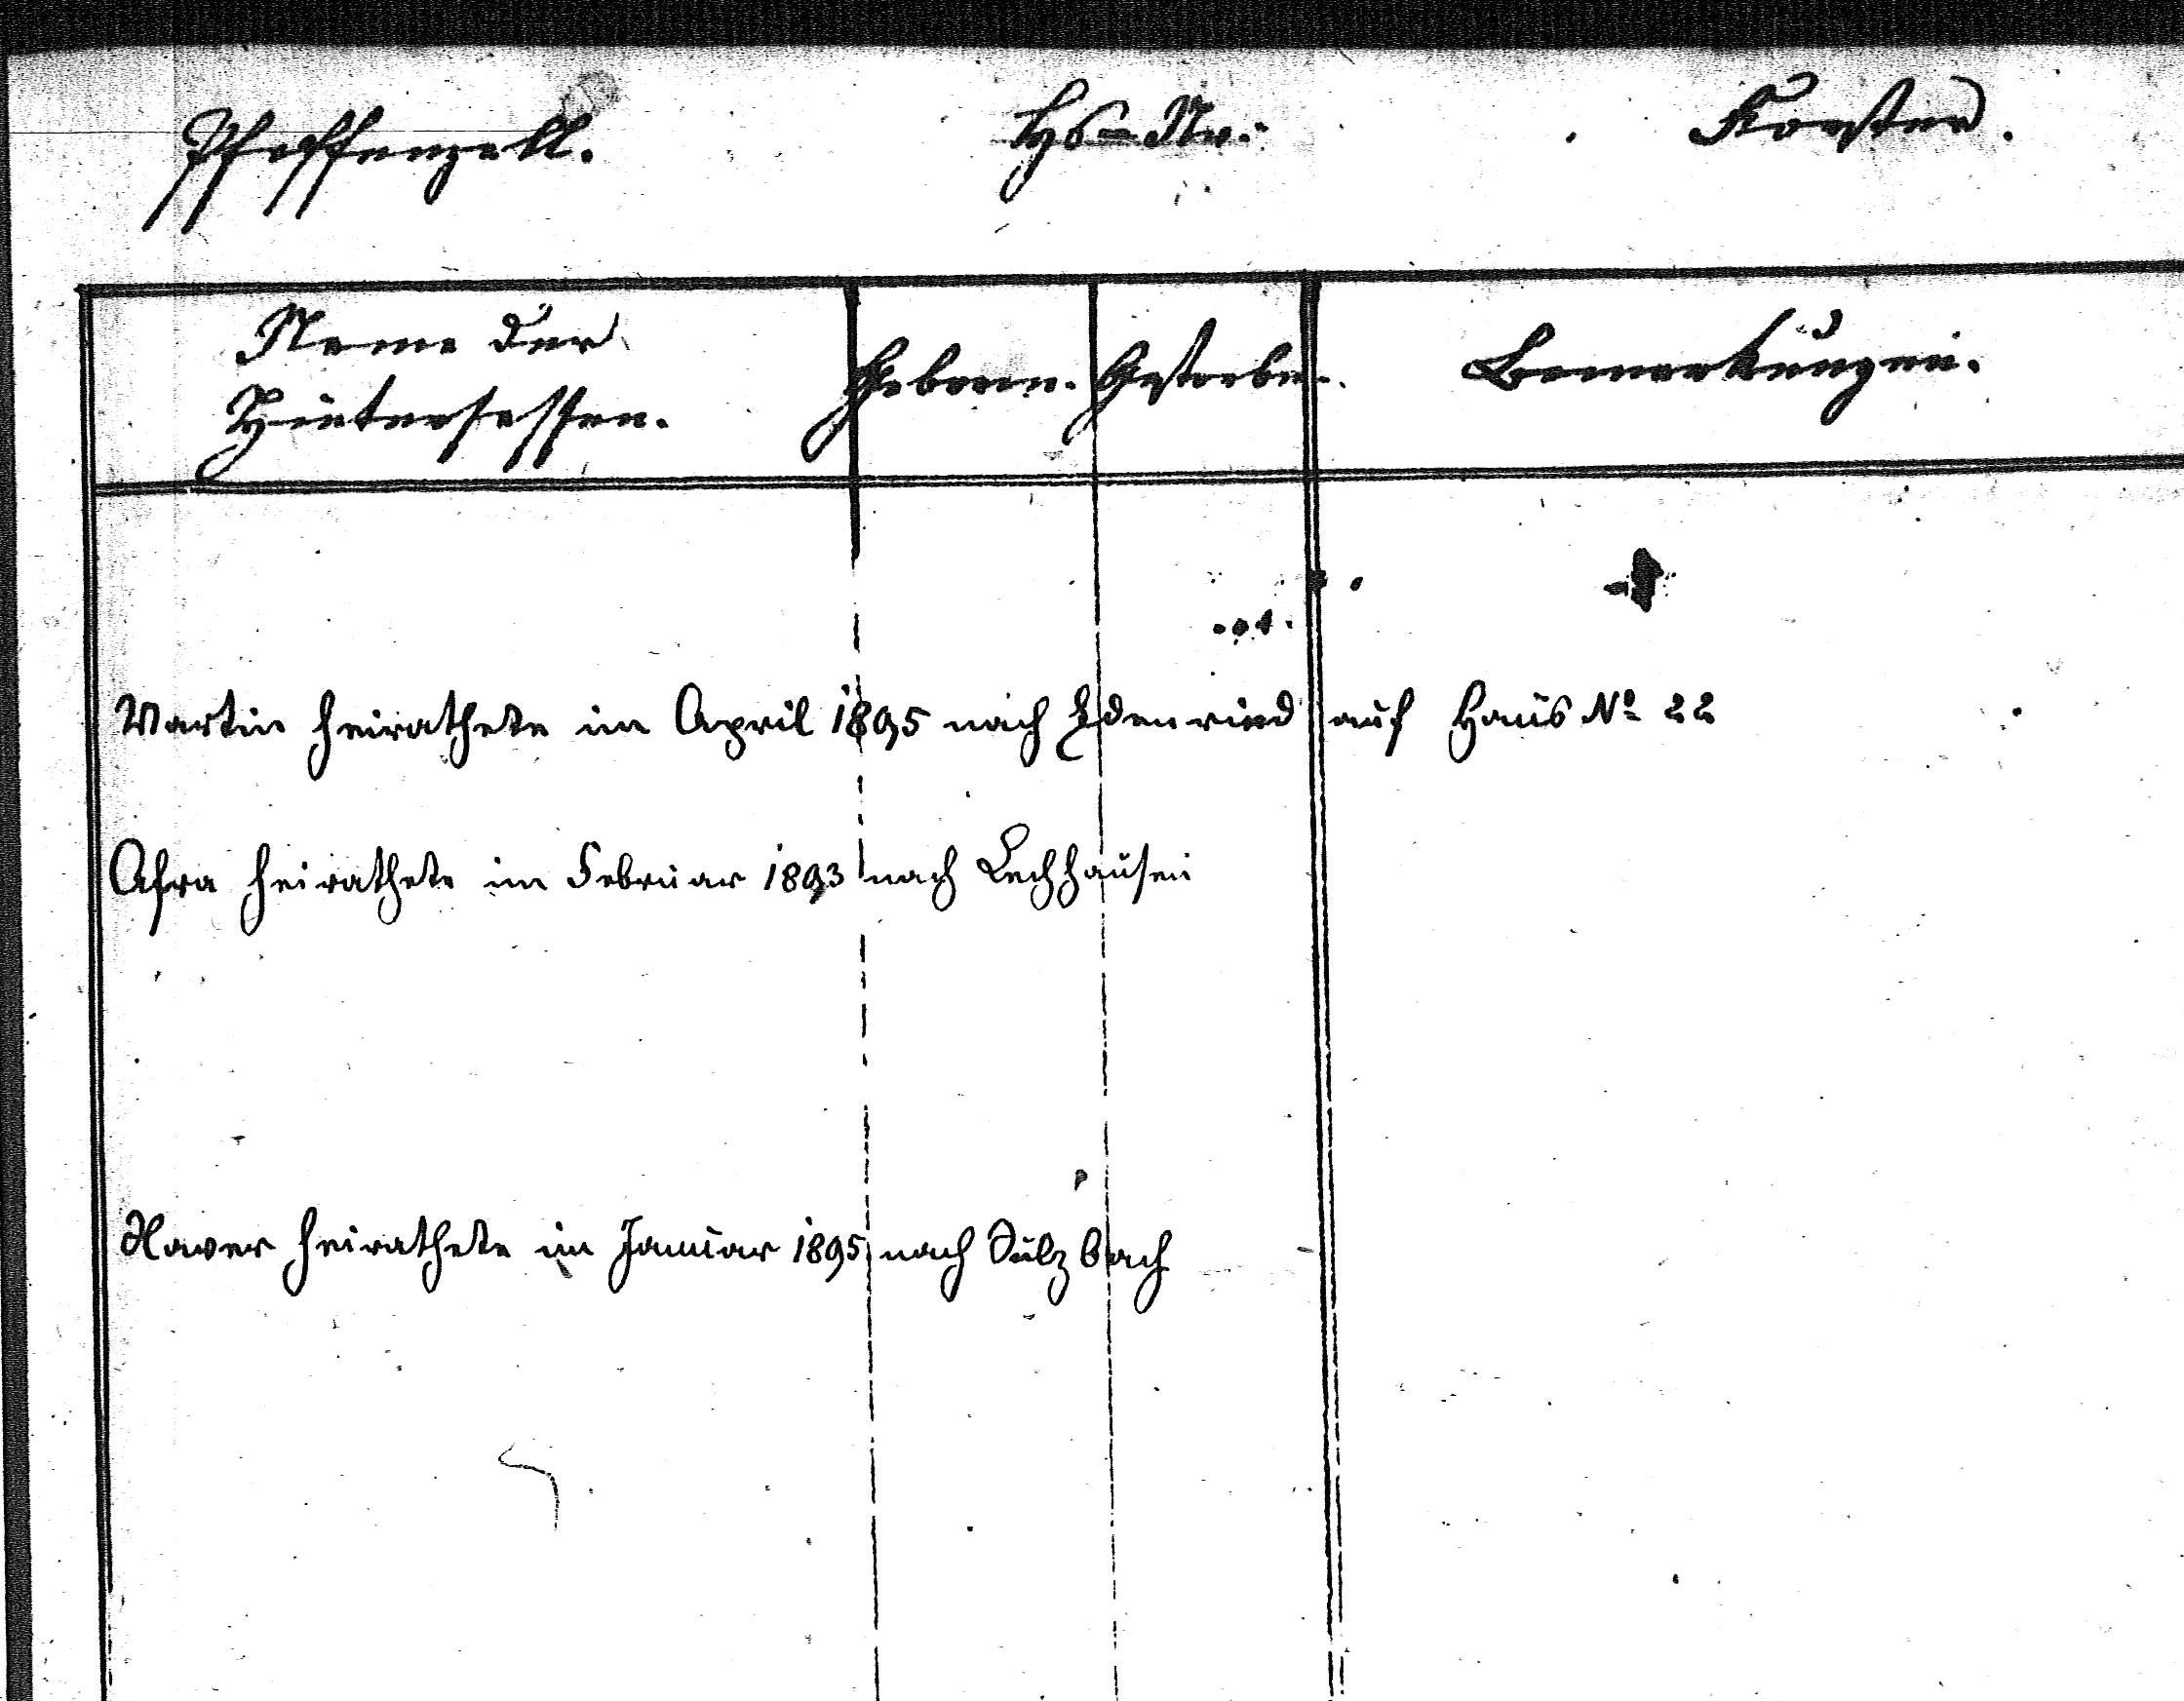 Pfaffenzell. Hs=Nr: Forster.
Name der
Hintersassen.
Geboren. Gestorben. Bemerkungen.
Martin heirathete im April 1895 nach Edenried auf Haus No 22
Afra heirathete im Februar 1893 nach Lechhausen
Xaver heirathete im Januar 1895 nach Sulzbach